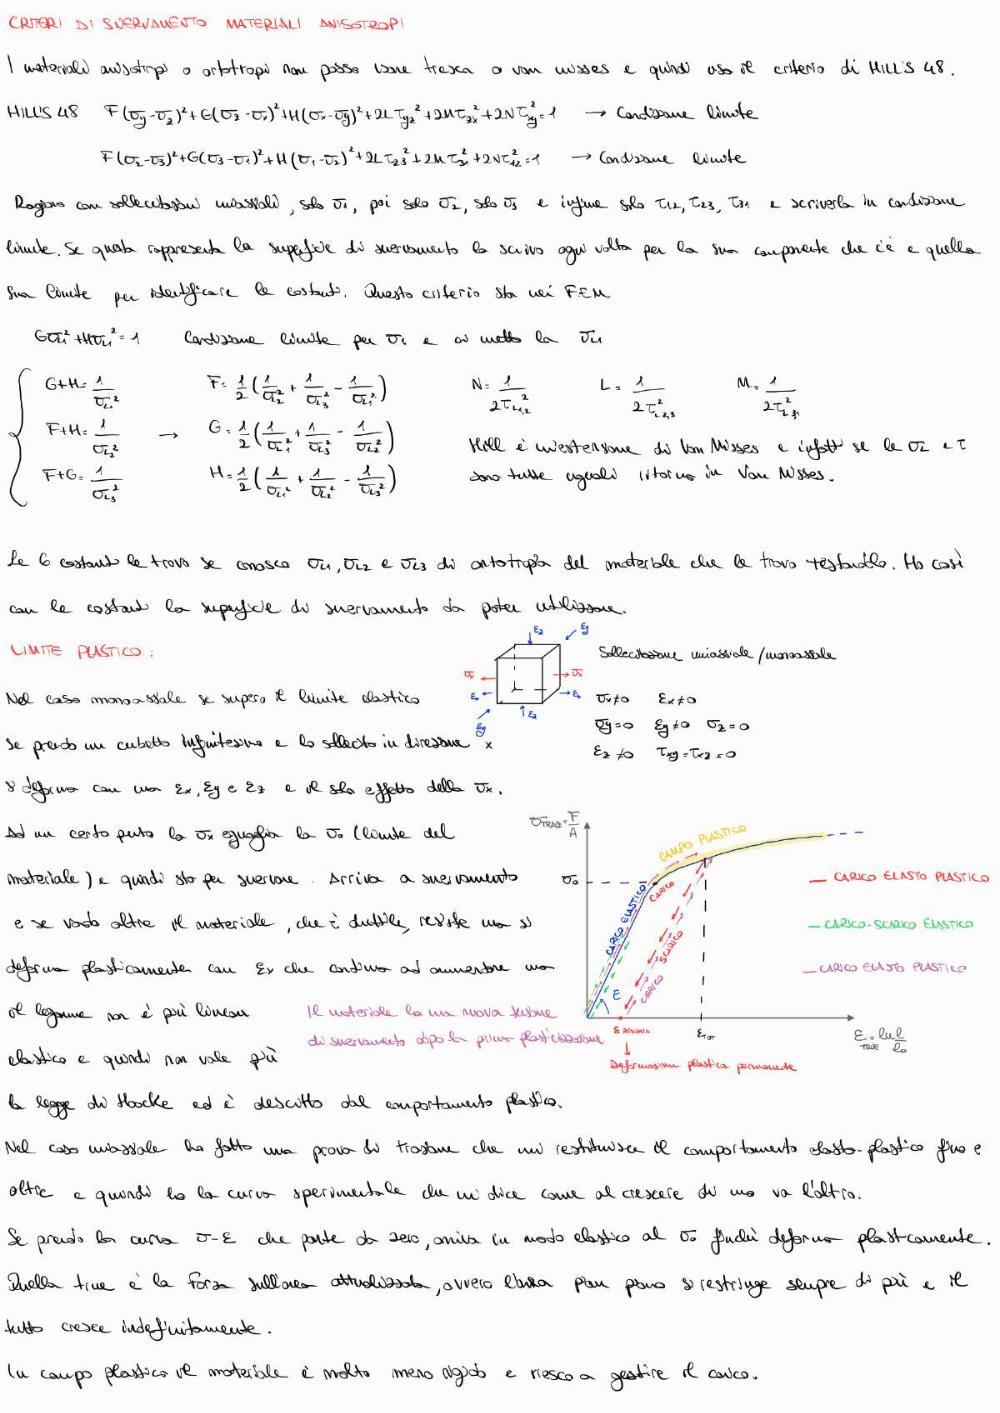 CRITERI DI SNERVAMENTO MATERIALI ANISOTROPI
I materiali anisotropi o ortotropi non posso usare tresca o von misses e quindi uso il criterio di HILL'S 48.
HILL'S 48 F(σy-σz)²+G(σz-σx)²+H(σx-σy)²+2Lτyz²+2Mτzx²+2Nτxy²=1 → Condizione limite
F(σ2-σ3)²+G(σ3-σ1)²+H(σ1-σ2)²+2Lτ23²+2Mτ31²+2Nτ12²=1 → Condizione limite
Ragiono con sollecitazioni uniassiali, solo σ1, poi solo σ2, solo σ3 e infine solo τ12, τ23, τ31 e scriverla in condizione
limite. Se questa rappresenta la superficie di snervamento la scrivo ogni volta per la sua componente che c'è e quella
sua limite per identificare le costanti. Questo criterio sta nei FEM
GσL1²+HσL1²=1 Condizione limite per σ1 e ci metto la σL1
G+H=1/σL1² F=1/2(1/σL2²+1/σL3²-1/σL1²) N=1/2τL1,2² L=1/2τL2,3² M=1/2τL3,1²
F+H=1/σL2² → G=1/2(1/σL1²+1/σL3²-1/σL2²) Hill è un'estensione di Von Misses e infatti se le σL e τ
F+G=1/σL3² H=1/2(1/σL1²+1/σL2²-1/σL3²) sono tutte uguali ritorno in Von Misses.
Le 6 costanti le trovo se conosco σL1, σL2 e σL3 di ortotropia del materiale che le trovo testandolo. Ho così
con le costanti la superficie di snervamento da poter utilizzare.
LIMITE PLASTICO:
εz εy
σx σx
εx εx
εy εz
Sollecitazione uniassiale/monoassiale
σx≠0 εx≠0
σy=0 εy≠0 σz=0
εz≠0 τxy=τxz=0
Nel caso monoassiale se supero il limite elastico
se prendo un cubetto infinitesimo e lo sollecito in direzione x
si deforma con una εx, εy e εz e il solo effetto della σx.
Ad un certo punto la σx eguaglia la σ0 (limite del
materiale) e quindi sto per snervare. Arriva a snervamento
e se vado oltre il materiale, che è duttile, resiste ma si
deforma plasticamente con εx che continua ad aumentare ma
il legame non è più lineare
elastico e quindi non vale più
la legge di Hooke ed è descritto dal comportamento plastico.
Il materiale ha una nuova tensione
di snervamento dopo la prima plasticizzazione
σTRUE=F/A
σ0
CAMPO PLASTICO
CARICO ELASTICO
CARICO
SCARICO
CARICO
E
ε residua
εTOT
ε=ln l/l0
TRUE
Deformazione plastica permanente
— CARICO ELASTO PLASTICO
— CARICO-SCARICO ELASTICO
— CARICO ELASTO PLASTICO
Nel caso uniassiale ho fatto una prova di trazione che mi restituisce il comportamento elasto-plastico fino e
oltre e quindi ho la curva sperimentale che mi dice come al crescere di uno va l'altro.
Se prendo la curva σ-ε che parte da zero, arriva in modo elastico al σ0 finché deforma plasticamente.
Quella true è la forza sull'area attualizzata, ovvero l'area pian piano si restringe sempre di più e il
tutto cresce indefinitamente.
In campo plastico il materiale è molto meno rigido e riesco a gestire il carico.